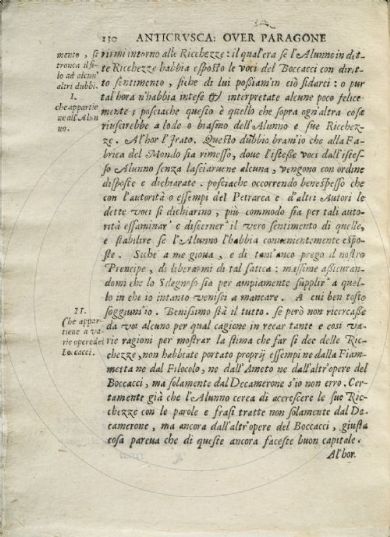 130 ANTICRVSCA: OVER PARAGONE
mento, si
tronca il filo
ad alcuni
altri dubbi.
I.
che appartiene
all'Alunno.
rirmi intorno alle Ricchezze: il qual'era se l'Alunno in dette
Ricchezze habbia esposto le voci del Boccacci con diritto
sentimento, siche di lui possiam'in ciò fidarci: o pur
tal hora n'habbia intese & interpretate alcune poco felicemente
; posciache questo è quello che sopra ogn'altra cosa
riuscirebbe a lodo o biasmo dell'Alunno e sue Ricchezze.
Al'hor l'Irato. Questo dubbio bram'io che alla Fabrica
del Mondo sia rimesso, doue l'istesse voci dall'istesso
Alunno senza lasciaruene alcuna, vengono con ordine
disposte e dichiarate. posciache occorrendo benespesso che
con l'autorità o essempi del Petrarca e d'altri Autori le
dette voci si dichiarino, più commodo sia per tali autorità
essaminar' e discerner' il vero sentimento di quelle,
e stabilire se l'Alunno l'habbia conuenientemente esposte.
Siche a me gioua, e di tant'anco prego il nostro
Prencipe, di liberarmi di tal fatica: massime assicurandomi
che lo Sdegnoso sia per ampiamente supplir' a quello
in che io intanto venissi a mancare. A cui ben tosto
soggiuns'io. Benissimo stà il tutto. se però non ricercasse
II.
Che appartiene
a varie
opere del
Boccacci.
da voi alcuno per qual cagione in recar tante e così varie
ragioni per mostrar la stima che far si dee delle Ricchezze,
non habbiate portato proprij essempi ne dalla Fiammetta
ne dal Filocolo, ne dall'Ameto ne dall'altr'opere del
Boccacci, ma solamente dal Decamerone s'io non erro. Certamente
già che l'Alunno cerca di accrescere le sue Ricchezze
con le parole e frasi tratte non solamente dal Decamerone,
ma ancora dall'altr'opere del Boccacci, giusta
cosa pareua che di queste ancora faceste buon capitale.
Al'hor